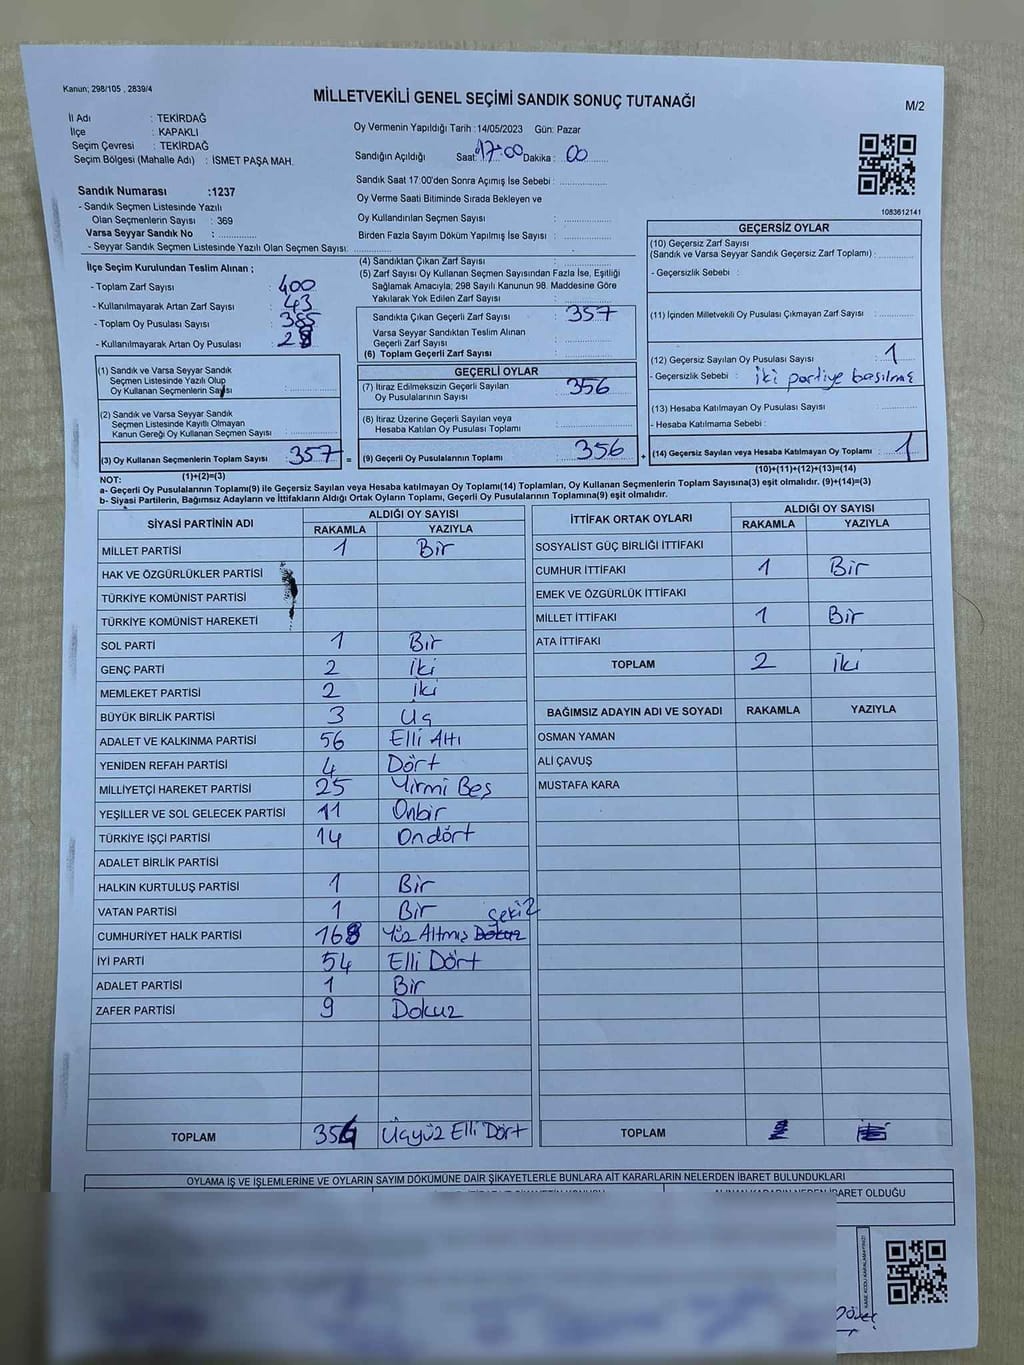 Kanun; 298/105 , 2839/4
MİLLETVEKİLİ GENEL SEÇİMİ SANDIK SONUÇ TUTANAĞI
M/2
İl Adı : TEKİRDAĞ
İlçe : KAPAKLI
Seçim Çevresi : TEKİRDAĞ
Seçim Bölgesi (Mahalle Adı) : İSMET PAŞA MAH.
Oy Vermenin Yapıldığı Tarih :14/05/2023 Gün: Pazar
Sandığın Açıldığı Saat: 17:00 Dakika : 00
Sandık Saat 17:00'den Sonra Açımış İse Sebebi :
Oy Verme Saati Bitiminde Sırada Bekleyen ve
Oy Kullandırılan Seçmen Sayısı :
Birden Fazla Sayım Döküm Yapılmış İse Sayısı :
Sandık Numarası :1237
- Sandık Seçmen Listesinde Yazılı
Olan Seçmenlerin Sayısı : 369
Varsa Seyyar Sandık No :
- Seyyar Sandık Seçmen Listesinde Yazılı Olan Seçmen Sayısı:
1083612141
İlçe Seçim Kurulundan Teslim Alınan ;
- Toplam Zarf Sayısı : 400
- Kullanılmayarak Artan Zarf Sayısı : 43
- Toplam Oy Pusulası Sayısı : 385
- Kullanılmayarak Artan Oy Pusulası :
(1) Sandık ve Varsa Seyyar Sandık
Seçmen Listesinde Yazılı Olup
Oy Kullanan Seçmenlerin Sayısı :
(2) Sandık ve Varsa Seyyar Sandık
Seçmen Listesinde Kayıtlı Olmayan
Kanun Gereği Oy Kullanan Seçmen Sayısı :
(3) Oy Kullanan Seçmenlerin Toplam Sayısı : 357 =
(1)+(2)=(3)
(4) Sandıktan Çıkan Zarf Sayısı :
(5) Zarf Sayısı Oy Kullanan Seçmen Sayısından Fazla İse, Eşitliği
Sağlamak Amacıyla; 298 Sayılı Kanunun 98. Maddesine Göre
Yakılarak Yok Edilen Zarf Sayısı :
Sandıkta Çıkan Geçerli Zarf Sayısı : 357
Varsa Seyyar Sandıktan Teslim Alınan
Geçerli Zarf Sayısı :
(6) Toplam Geçerli Zarf Sayısı :
GEÇERLİ OYLAR
(7) İtiraz Edilmeksizin Geçerli Sayılan
Oy Pusulalarının Sayısı : 356
(8) İtiraz Üzerine Geçerli Sayılan veya
Hesaba Katılan Oy Pusulası Toplamı :
(9) Geçerli Oy Pusulalarının Toplamı : 356 +
GEÇERSİZ OYLAR
(10) Geçersiz Zarf Sayısı
(Sandık ve Varsa Seyyar Sandık Geçersiz Zarf Toplamı) :
- Geçersizlik Sebebi :
(11) İçinden Milletvekili Oy Pusulası Çıkmayan Zarf Sayısı :
(12) Geçersiz Sayılan Oy Pusulası Sayısı : 1
- Geçersizlik Sebebi : iki partiye basılmış
(13) Hesaba Katılmayan Oy Pusulası Sayısı :
- Hesaba Katılmama Sebebi :
(14) Geçersiz Sayılan veya Hesaba Katılmayan Oy Toplamı : 1
(10)+(11)+(12)+(13)=(14)
NOT:
a- Geçerli Oy Pusulalarının Toplamı(9) ile Geçersiz Sayılan veya Hesaba Katılmayan Oy Toplamı(14) Toplamları, Oy Kullanan Seçmenlerin Toplam Sayısına(3) eşit olmalıdır. (9)+(14)=(3)
b- Siyasi Partilerin, Bağımsız Adayların ve İttifakların Aldığı Ortak Oyların Toplamı, Geçerli Oy Pusulalarının Toplamına(9) eşit olmalıdır.
SİYASİ PARTİNİN ADI ALDIĞI OY SAYISI
RAKAMLA YAZIYLA
MİLLET PARTİSİ 1 Bir
HAK VE ÖZGÜRLÜKLER PARTİSİ
TÜRKİYE KOMÜNİST PARTİSİ
TÜRKİYE KOMÜNİST HAREKETİ
SOL PARTİ 1 Bir
GENÇ PARTİ 2 iki
MEMLEKET PARTİSİ 2 iki
BÜYÜK BİRLİK PARTİSİ 3 Üç
ADALET VE KALKINMA PARTİSİ 56 Elli Altı
YENİDEN REFAH PARTİSİ 4 Dört
MİLLİYETÇİ HAREKET PARTİSİ 25 Yirmi Beş
YEŞİLLER VE SOL GELECEK PARTİSİ 11 Onbir
TÜRKİYE İŞÇİ PARTİSİ 14 Ondört
ADALET BİRLİK PARTİSİ
HALKIN KURTULUŞ PARTİSİ 1 Bir
VATAN PARTİSİ 1 Bir
CUMHURİYET HALK PARTİSİ 168 Yüz Altmış Dokuz sekiz
İYİ PARTİ 54 Elli Dört
ADALET PARTİSİ 1 Bir
ZAFER PARTİSİ 9 Dokuz
TOPLAM Üçyüz Elli Dört
İTTİFAK ORTAK OYLARI ALDIĞI OY SAYISI
RAKAMLA YAZIYLA
SOSYALİST GÜÇ BİRLİĞİ İTTİFAKI
CUMHUR İTTİFAKI 1 Bir
EMEK VE ÖZGÜRLÜK İTTİFAKI
MİLLET İTTİFAKI 1 Bir
ATA İTTİFAKI
TOPLAM 2 iki
BAĞIMSIZ ADAYIN ADI VE SOYADI RAKAMLA YAZIYLA
OSMAN YAMAN
ALİ ÇAVUŞ
MUSTAFA KARA
TOPLAM
OYLAMA İŞ VE İŞLEMLERİNE VE OYLARIN SAYIM DÖKÜMÜNE DAİR ŞİKAYETLERLE BUNLARA AİT KARARLARIN NELERDEN İBARET BULUNDUKLARI
ALINAN KARARIN NEDEN İBARET OLDUĞU